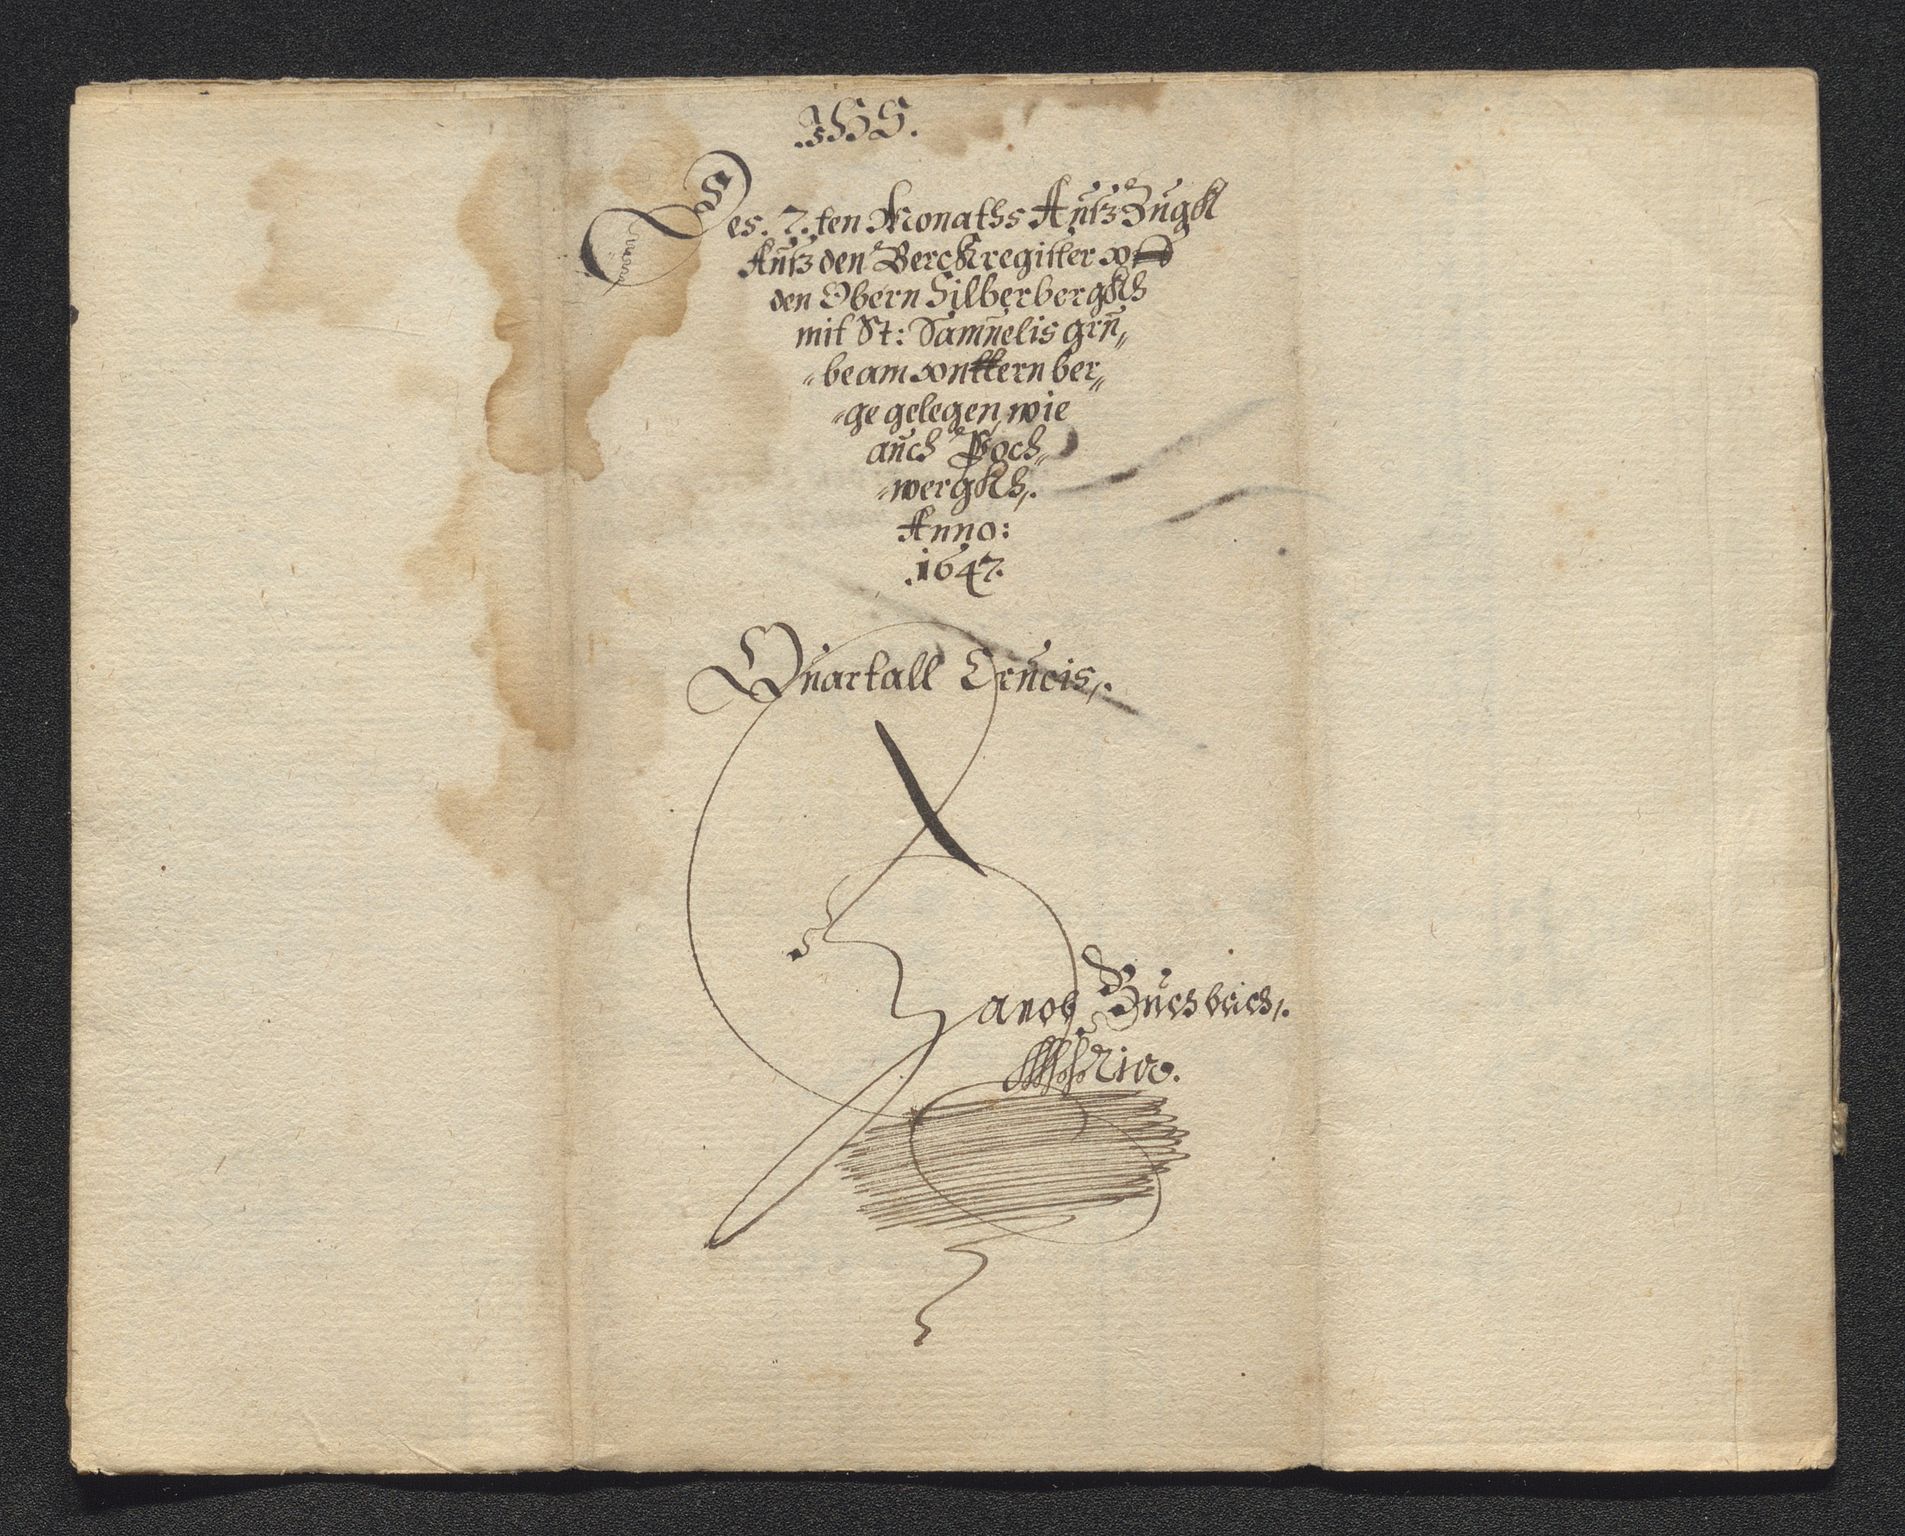 JHS.
Des. 7.ten Monaths Außzugk
Auß den Berckregister von
den Obern Silberbergkh
mit St: Samuelis gru„
„be am vnttern ber„
„ge gelegen, wie
auch Poch„
„wergkh,.
Anno:
.1647.
Quartall Crucis,.
Jacob Buchbeich,.